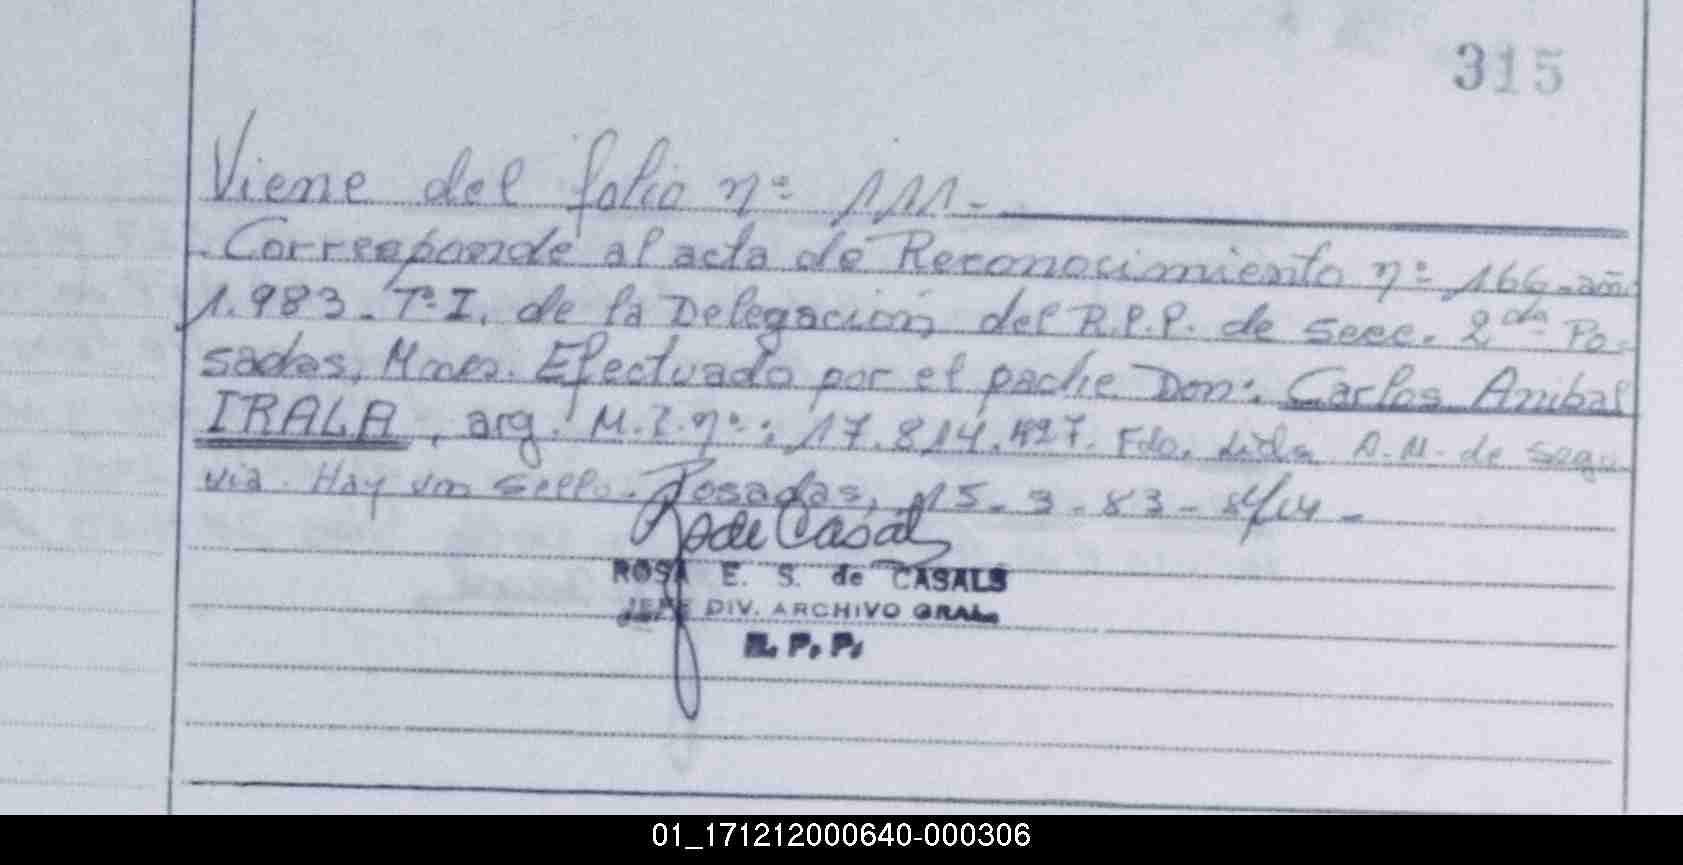 315
Viene del folio nº 111.-
Corresponde al acta de Reconocimiento nº 166-año
1.983. Tº I. de la Delegación del R.P.P. de Secc. 2da Po-
sadas, Mnes. Efectuado por el padre Don: Carlos Anibal
IRALA, arg. M.I. nº: 17.814.427. Fdo. Lidia A.M. de Sego
via. Hay un sello. Posadas, 15-3-83-
ROSA E. S. de CASALS
JEFE DIV. ARCHIVO GRAL.
R. P. P.
01_171212000640-000306